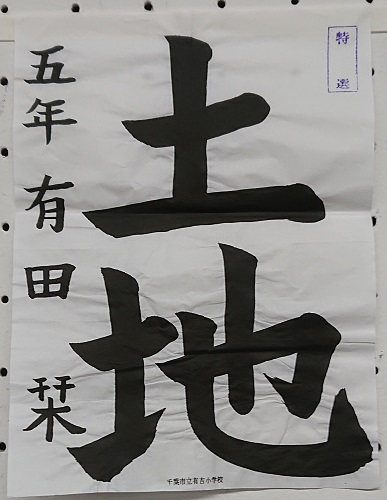 特選
土地
五年 有田 栞
千葉市立有吉小学校